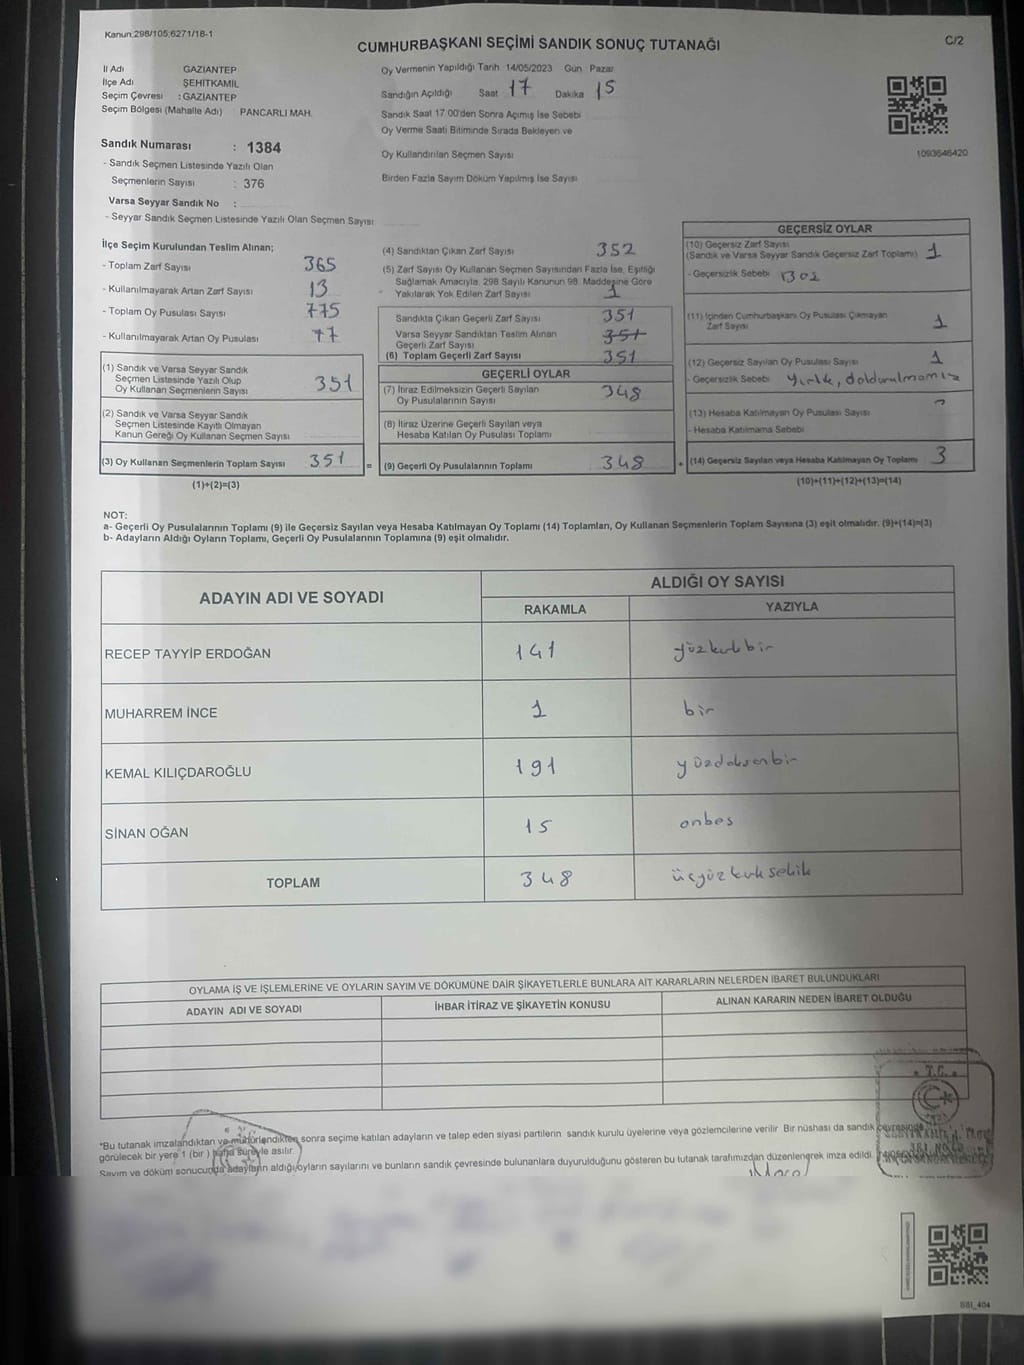 Kanun:298/105,6271/18-1
C/2
CUMHURBAŞKANI SEÇİMİ SANDIK SONUÇ TUTANAĞI
İl Adı GAZİANTEP
İlçe Adı ŞEHİTKAMİL
Seçim Çevresi : GAZİANTEP
Seçim Bölgesi (Mahalle Adı) PANCARLI MAH.
Sandık Numarası : 1384
- Sandık Seçmen Listesinde Yazılı Olan
Seçmenlerin Sayısı : 376
Varsa Seyyar Sandık No :
- Seyyar Sandık Seçmen Listesinde Yazılı Olan Seçmen Sayısı
Oy Vermenin Yapıldığı Tarih 14/05/2023 Gün Pazar
Sandığın Açıldığı Saat 17 Dakika 15
Sandık Saat 17.00'den Sonra Açımış İse Sebebi
Oy Verme Saati Bitiminde Sırada Bekleyen ve
Oy Kullandırılan Seçmen Sayısı
Birden Fazla Sayım Döküm Yapılmış İse Sayısı
1093646420
İlçe Seçim Kurulundan Teslim Alınan;
- Toplam Zarf Sayısı 365
- Kullanılmayarak Artan Zarf Sayısı 13
- Toplam Oy Pusulası Sayısı 775
- Kullanılmayarak Artan Oy Pusulası 77
(1) Sandık ve Varsa Seyyar Sandık
Seçmen Listesinde Yazılı Olup
Oy Kullanan Seçmenlerin Sayısı 351
(2) Sandık ve Varsa Seyyar Sandık
Seçmen Listesinde Kayıtlı Olmayan
Kanun Gereği Oy Kullanan Seçmen Sayısı
(3) Oy Kullanan Seçmenlerin Toplam Sayısı 351 =
(1)+(2)=(3)
(4) Sandıktan Çıkan Zarf Sayısı 352
(5) Zarf Sayısı Oy Kullanan Seçmen Sayısından Fazla İse, Eşitliği
Sağlamak Amacıyla, 298 Sayılı Kanunun 98. Maddesine Göre
Yakılarak Yok Edilen Zarf Sayısı 1
Sandıkta Çıkan Geçerli Zarf Sayısı 351
Varsa Seyyar Sandıktan Teslim Alınan
Geçerli Zarf Sayısı 351
(6) Toplam Geçerli Zarf Sayısı 351
GEÇERLİ OYLAR
(7) İtiraz Edilmeksizin Geçerli Sayılan
Oy Pusulalarının Sayısı 348
(8) İtiraz Üzerine Geçerli Sayılan veya
Hesaba Katılan Oy Pusulası Toplamı
(9) Geçerli Oy Pusulalarının Toplamı 348 +
GEÇERSİZ OYLAR
(10) Geçersiz Zarf Sayısı
(Sandık ve Varsa Seyyar Sandık Geçersiz Zarf Toplamı) 1
- Geçersizlik Sebebi
(11) İçinden Cumhurbaşkanı Oy Pusulası Çıkmayan
Zarf Sayısı 1
(12) Geçersiz Sayılan Oy Pusulası Sayısı 1
- Geçersizlik Sebebi Yırtık, doldurulmamış
(13) Hesaba Katılmayan Oy Pusulası Sayısı
- Hesaba Katılmama Sebebi
(14) Geçersiz Sayılan veya Hesaba Katılmayan Oy Toplamı 3
(10)+(11)+(12)+(13)=(14)
NOT:
a- Geçerli Oy Pusulalarının Toplamı (9) ile Geçersiz Sayılan veya Hesaba Katılmayan Oy Toplamı (14) Toplamları, Oy Kullanan Seçmenlerin Toplam Sayısına (3) eşit olmalıdır. (9)+(14)=(3)
b- Adayların Aldığı Oyların Toplamı, Geçerli Oy Pusulalarının Toplamına (9) eşit olmalıdır.
ADAYIN ADI VE SOYADI ALDIĞI OY SAYISI
RAKAMLA YAZIYLA
RECEP TAYYİP ERDOĞAN 141 yüzkırkbir
MUHARREM İNCE 1 bir
KEMAL KILIÇDAROĞLU 191 yüzdoksanbir
SİNAN OĞAN 15 onbeş
TOPLAM 348 üçyüzkırksekiz
OYLAMA İŞ VE İŞLEMLERİNE VE OYLARIN SAYIM VE DÖKÜMÜNE DAİR ŞİKAYETLERLE BUNLARA AİT KARARLARIN NELERDEN İBARET BULUNDUKLARI
ADAYIN ADI VE SOYADI İHBAR İTİRAZ VE ŞİKAYETİN KONUSU ALINAN KARARIN NEDEN İBARET OLDUĞU
T.C.
*Bu tutanak imzalandıktan ve mühürlendikten sonra seçime katılan adayların ve talep eden siyasi partilerin sandık kurulu üyelerine veya gözlemcilerine verilir Bir nüshası da sandık çevresinde
görülecek bir yere 1 (bir ) hafta süreyle asılır.
Sayım ve döküm sonucunda adayların aldığı oyların sayılarını ve bunların sandık çevresinde bulunanlara duyurulduğunu gösteren bu tutanak tarafımızdan düzenlenerek imza edildi.
BBI_404